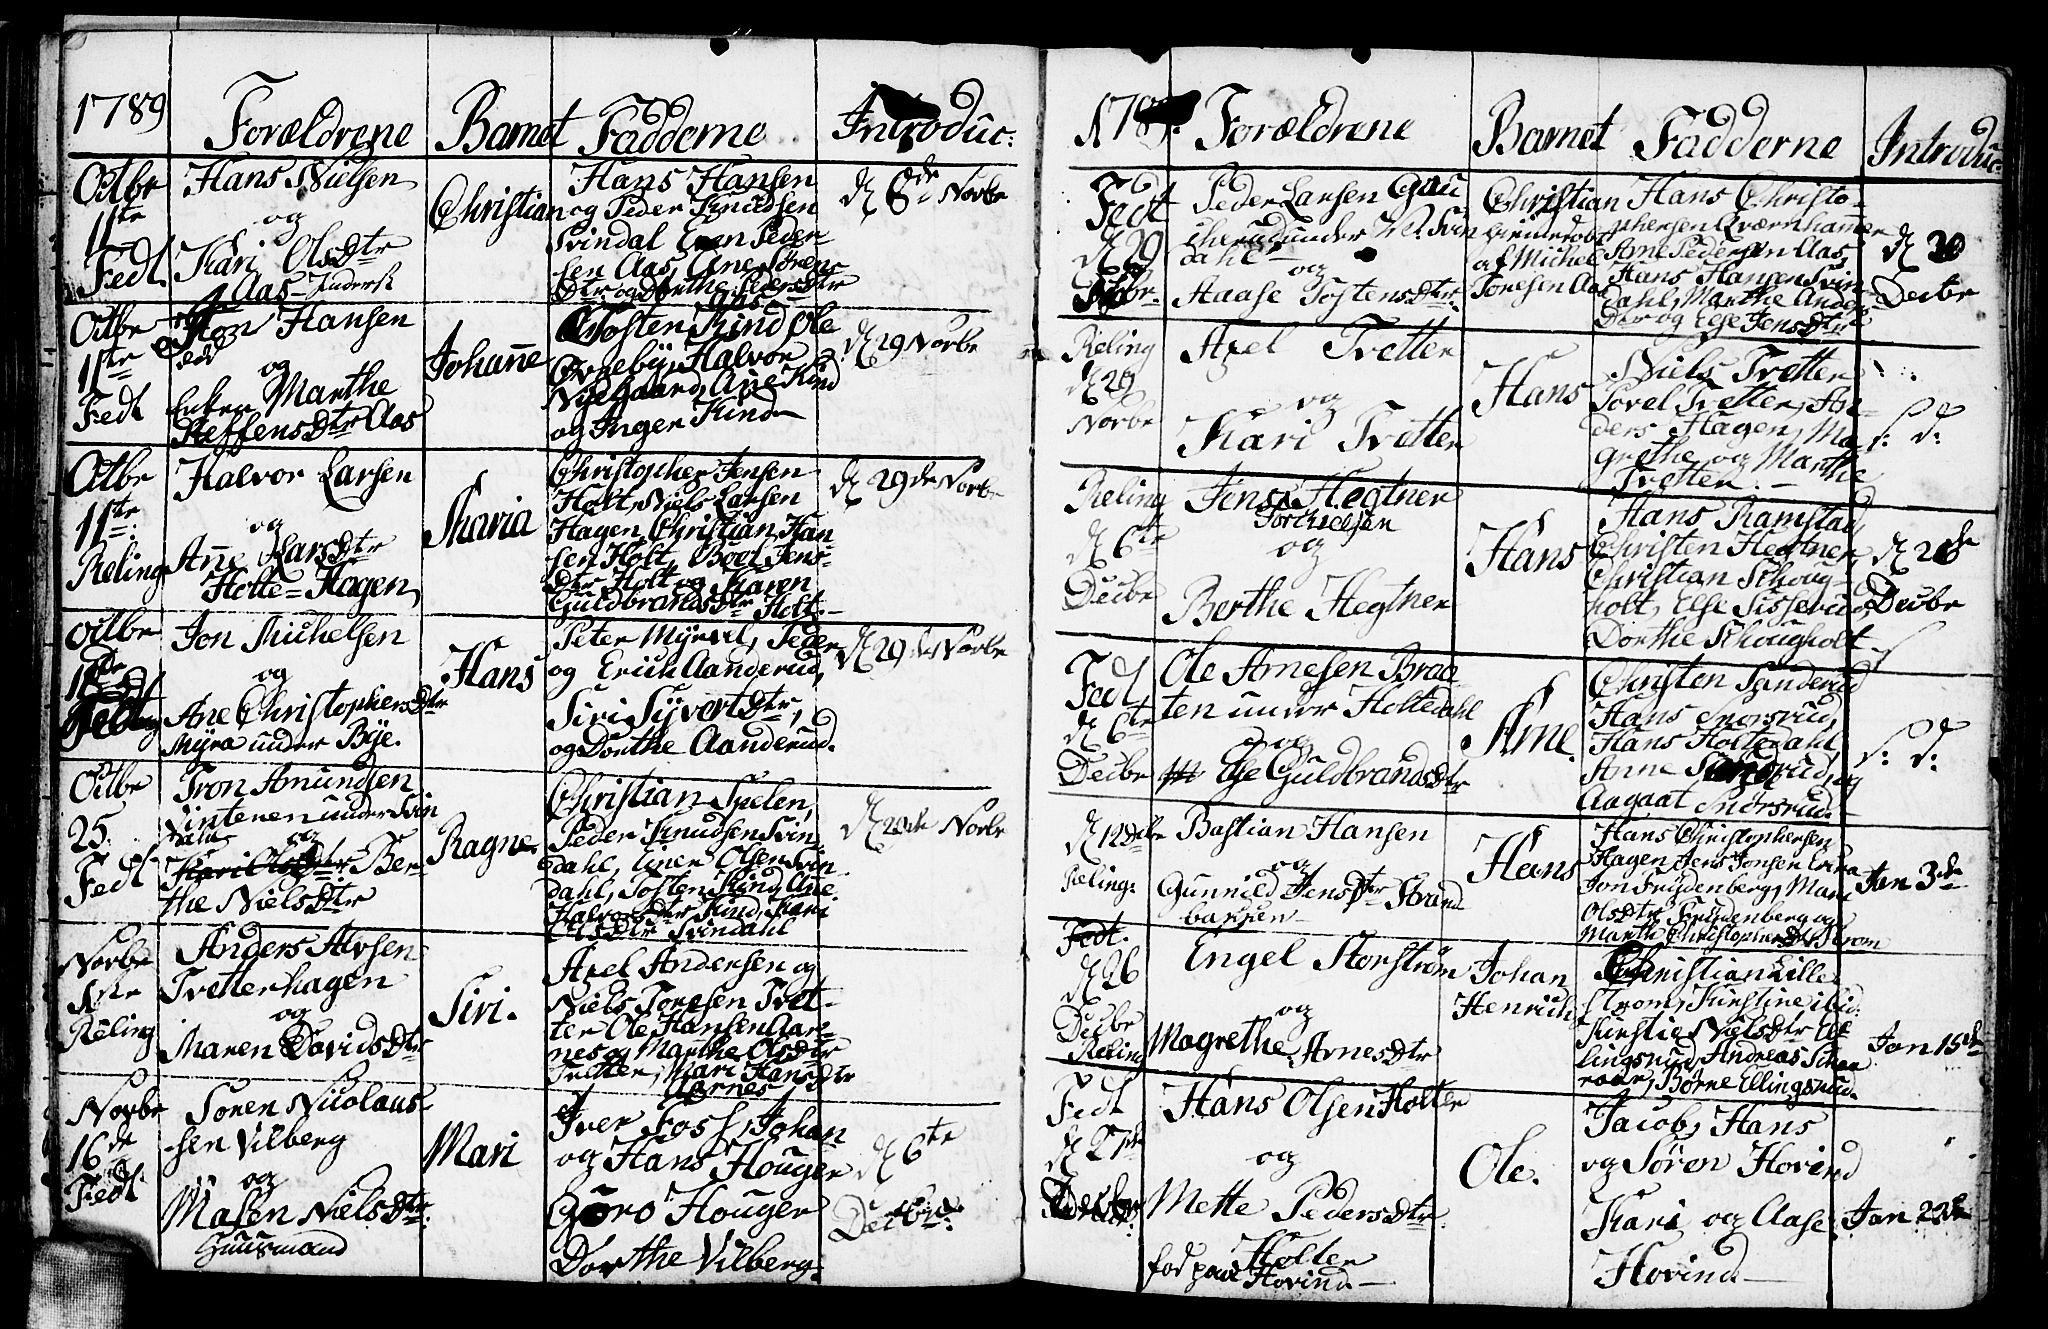 1789 Forældrene Barnet Fadderne Introduc:
Octbr
11te
Fedt.
Hans Nielsen
og
Kari OlsDtr
Aas-Inderst
Christian
Hans Hansen
og Peder Knudsen
Svindal Even Peder-
sen Aas, Ane Sörens
Dtr og Dorthe PedersDtr
Aas
d 8de Novbr
Octbr
11te
Fedt
Jon Hansen
og
Enken Marthe
SteffensDtr Aas
Johane
Tosten Kind Ole
Ovnebÿe, Halvor
Nÿegaard, Ane Kind
og Inger Kind
d 29 Novbr
Octbr
11te
Reling
Halvor Larsen
og
Ane LarsDtr
Holte-Hagen
Maria
Christopher Jensen
Holt, Niels Larsen
Hagen, Christian Han-
sen Holt, Boel Jens-
dtr Holt og Karen
GuldbrandsDtr Holt-
d 29de Novbr
Octbr
Jon Michelsen
og
Ane ChristophersDtr
Mÿra under Bÿe.
Hans
Peter Mÿrvel, Peder
og Erich Aanderud,
Siri SÿvertDtr,
og Dorthe Aanderud.
d 29de Novbr
Octbr
25.
Fedt
Tron Amundsen
under Svin
dahl og
Kari OlsDtr Ber-
the NielsDtr
Ragne.
Christian Spelen,
Peder Knudsen Svin
dahl, Einer Olsen Svin
dahl, Tosten Kind, Ane
HalvorsDtr Kind, Kari
OlsDtr Svindahl
d 22de Novbr
Novbr
1ste
Reling
Anders Alvsen
Tvetterhagen
og
Maren DavidsDtr
Siri.
Axel Andersen og
Niels Toresen Tvet-
ter Ole Hansen Aar-
nes og Marthe OlsDtr
Tvetter, Mari HansDtr
Aarnes
Novbr
16de
Fedt
Sören Nicolaus-
sen Vilberg
og
Maren NielsDtr.
Huusmand
Mari
Iver Foss, Johan
og Hans Houger
Göro Houger
Dorthe Vilberg.
d 6te
Decbr:
178 Forældrene Barnet Fadderne Introduc:
Fedt
d 29
Peder Larsen Gau
cherud under N. Svin
dahl
og
Aaase TostensDtr.
Christian
af Michel
Toresen Aas
Hans Christo-
phersen Qværnhammer
Arne Pedersen Aas,
Hans Hansen Svin-
dahl, Marthe Anders
Dtr og Else JensDtr
d 20
Decbr
Reling
d 29
Novbr
Axel Tvetter
og
Kari Tvetter
Hans
Niels Tvetter
Povel Tvetter, An-
ders Hagen, Ma-
grethe og Marthe
Tvetter.-
s: d:
Reling
d 6te
Decbr
Jens Hegtner
Torchielsen
og
Berthe Hegtner
Hans
Hans Ramstad,
Christen Hegtner,
Christian Schoug-
holt, Else Sisserud
Dorthe Schougholt
d 26de
Decbr
Fedt
d 6te
Decbr
Ole Arnesen Braa
ten under Holtedahl
og
Else GuldbrandsDtr
Arne.
Christen Sanderud
Hans Snorsrud,
Hans Holtedahl
Anne Sanderud, og
Aagaat Snorsrud.
s: d:
d 12 Decbr
Reling:
Bastian Hansen
og
Gunnild JensDtr Strand
bakken
Hans
Hans Christophersen
Hagen, Jens Jonsen
Jon Frÿdenberg, Mari
OlsDtr Frÿdenberg og
Marthe ChristophersDtr Strøm
Jan 3de
Fedt.
d 26
Decbr
Reling
Engel Storstrøm
og
Magrethe ArnesDtr
Johan
Henrich
Christian Lille
strøm, Kirstine ibid:
Kirstie NielsDtr El
lingsrud, Andreas
Børre Ellingsrud.
Jan 15de
Fedt
d 27de
Decbr
Hans Olsen Holter
og
Mette PedersDtr.
Holter
fod paa Hovind-
Ole.
Jacob, Hans
og Søren Hovind
Kari og Aase
Hovind-
Jan 22de